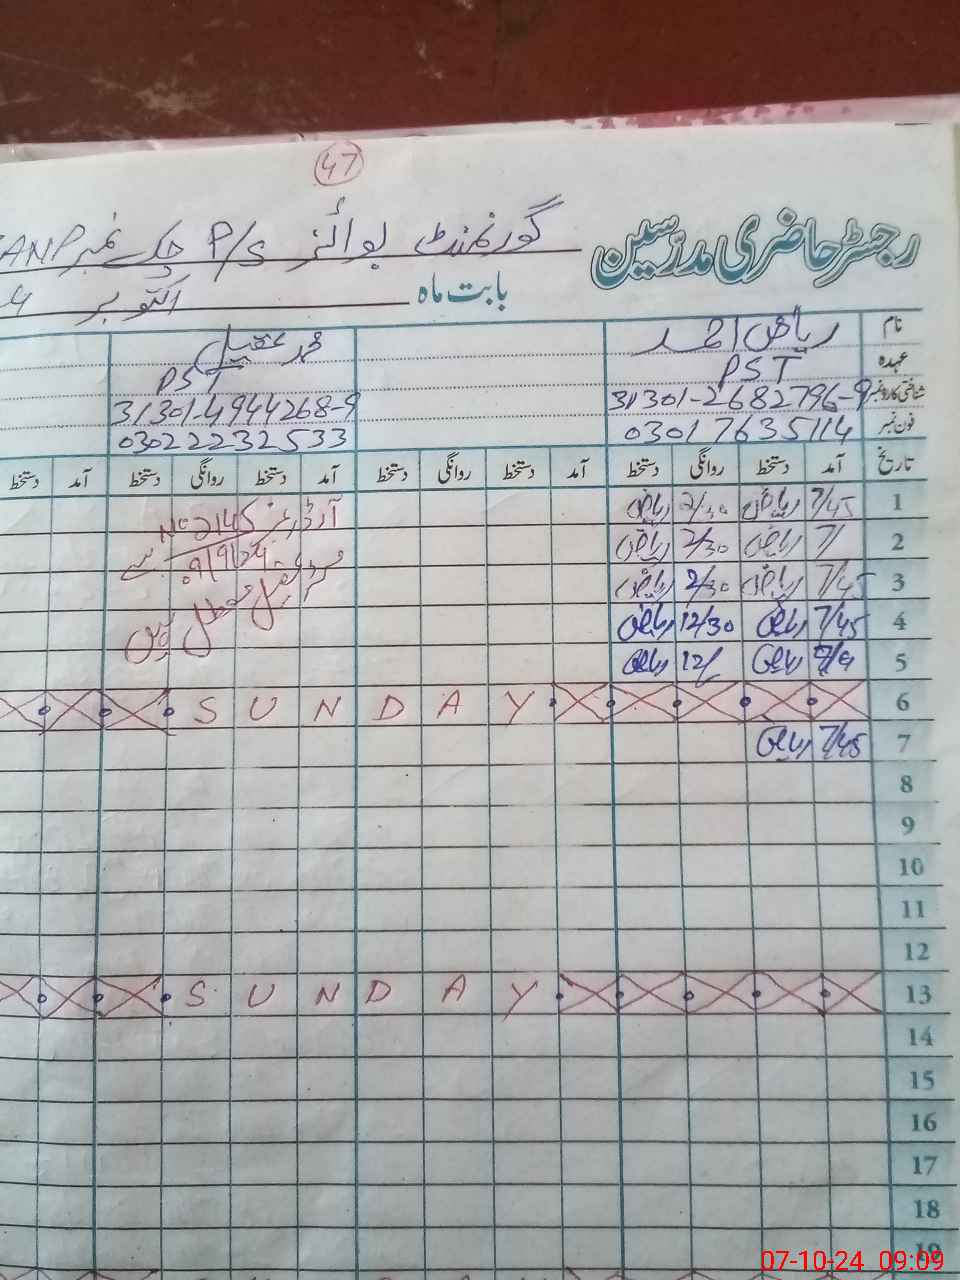 47
رجسٹر حاضری مدرسین گورنمنٹ بوائز P/S چک نمبر
بابت ماہ اکتوبر
نام ریاض احمد محمد عقیل
عہدہ PST PST
شناختی کارڈ نمبر 31301-2682796-9 31301-4944268-9
فون نمبر 03017635114 03022232533
تاریخ آمد دستخط روانگی دستخط آمد دستخط روانگی دستخط آمد دستخط روانگی دستخط آمد دستخط
1 7/45 ریاض 2/30 ریاض آرڈر نمبر No 2145
2 7/ ریاض 2/30 ریاض سے
3 7/45 ریاض 2/30 ریاض
4 7/45 ریاض 12/30 ریاض معطل ہیں
5 ریاض 12/ ریاض
6 SUNDAY
7 7/45 ریاض
8
9
10
11
12
13 SUNDAY
14
15
16
17
18
19
07-10-24 09:09